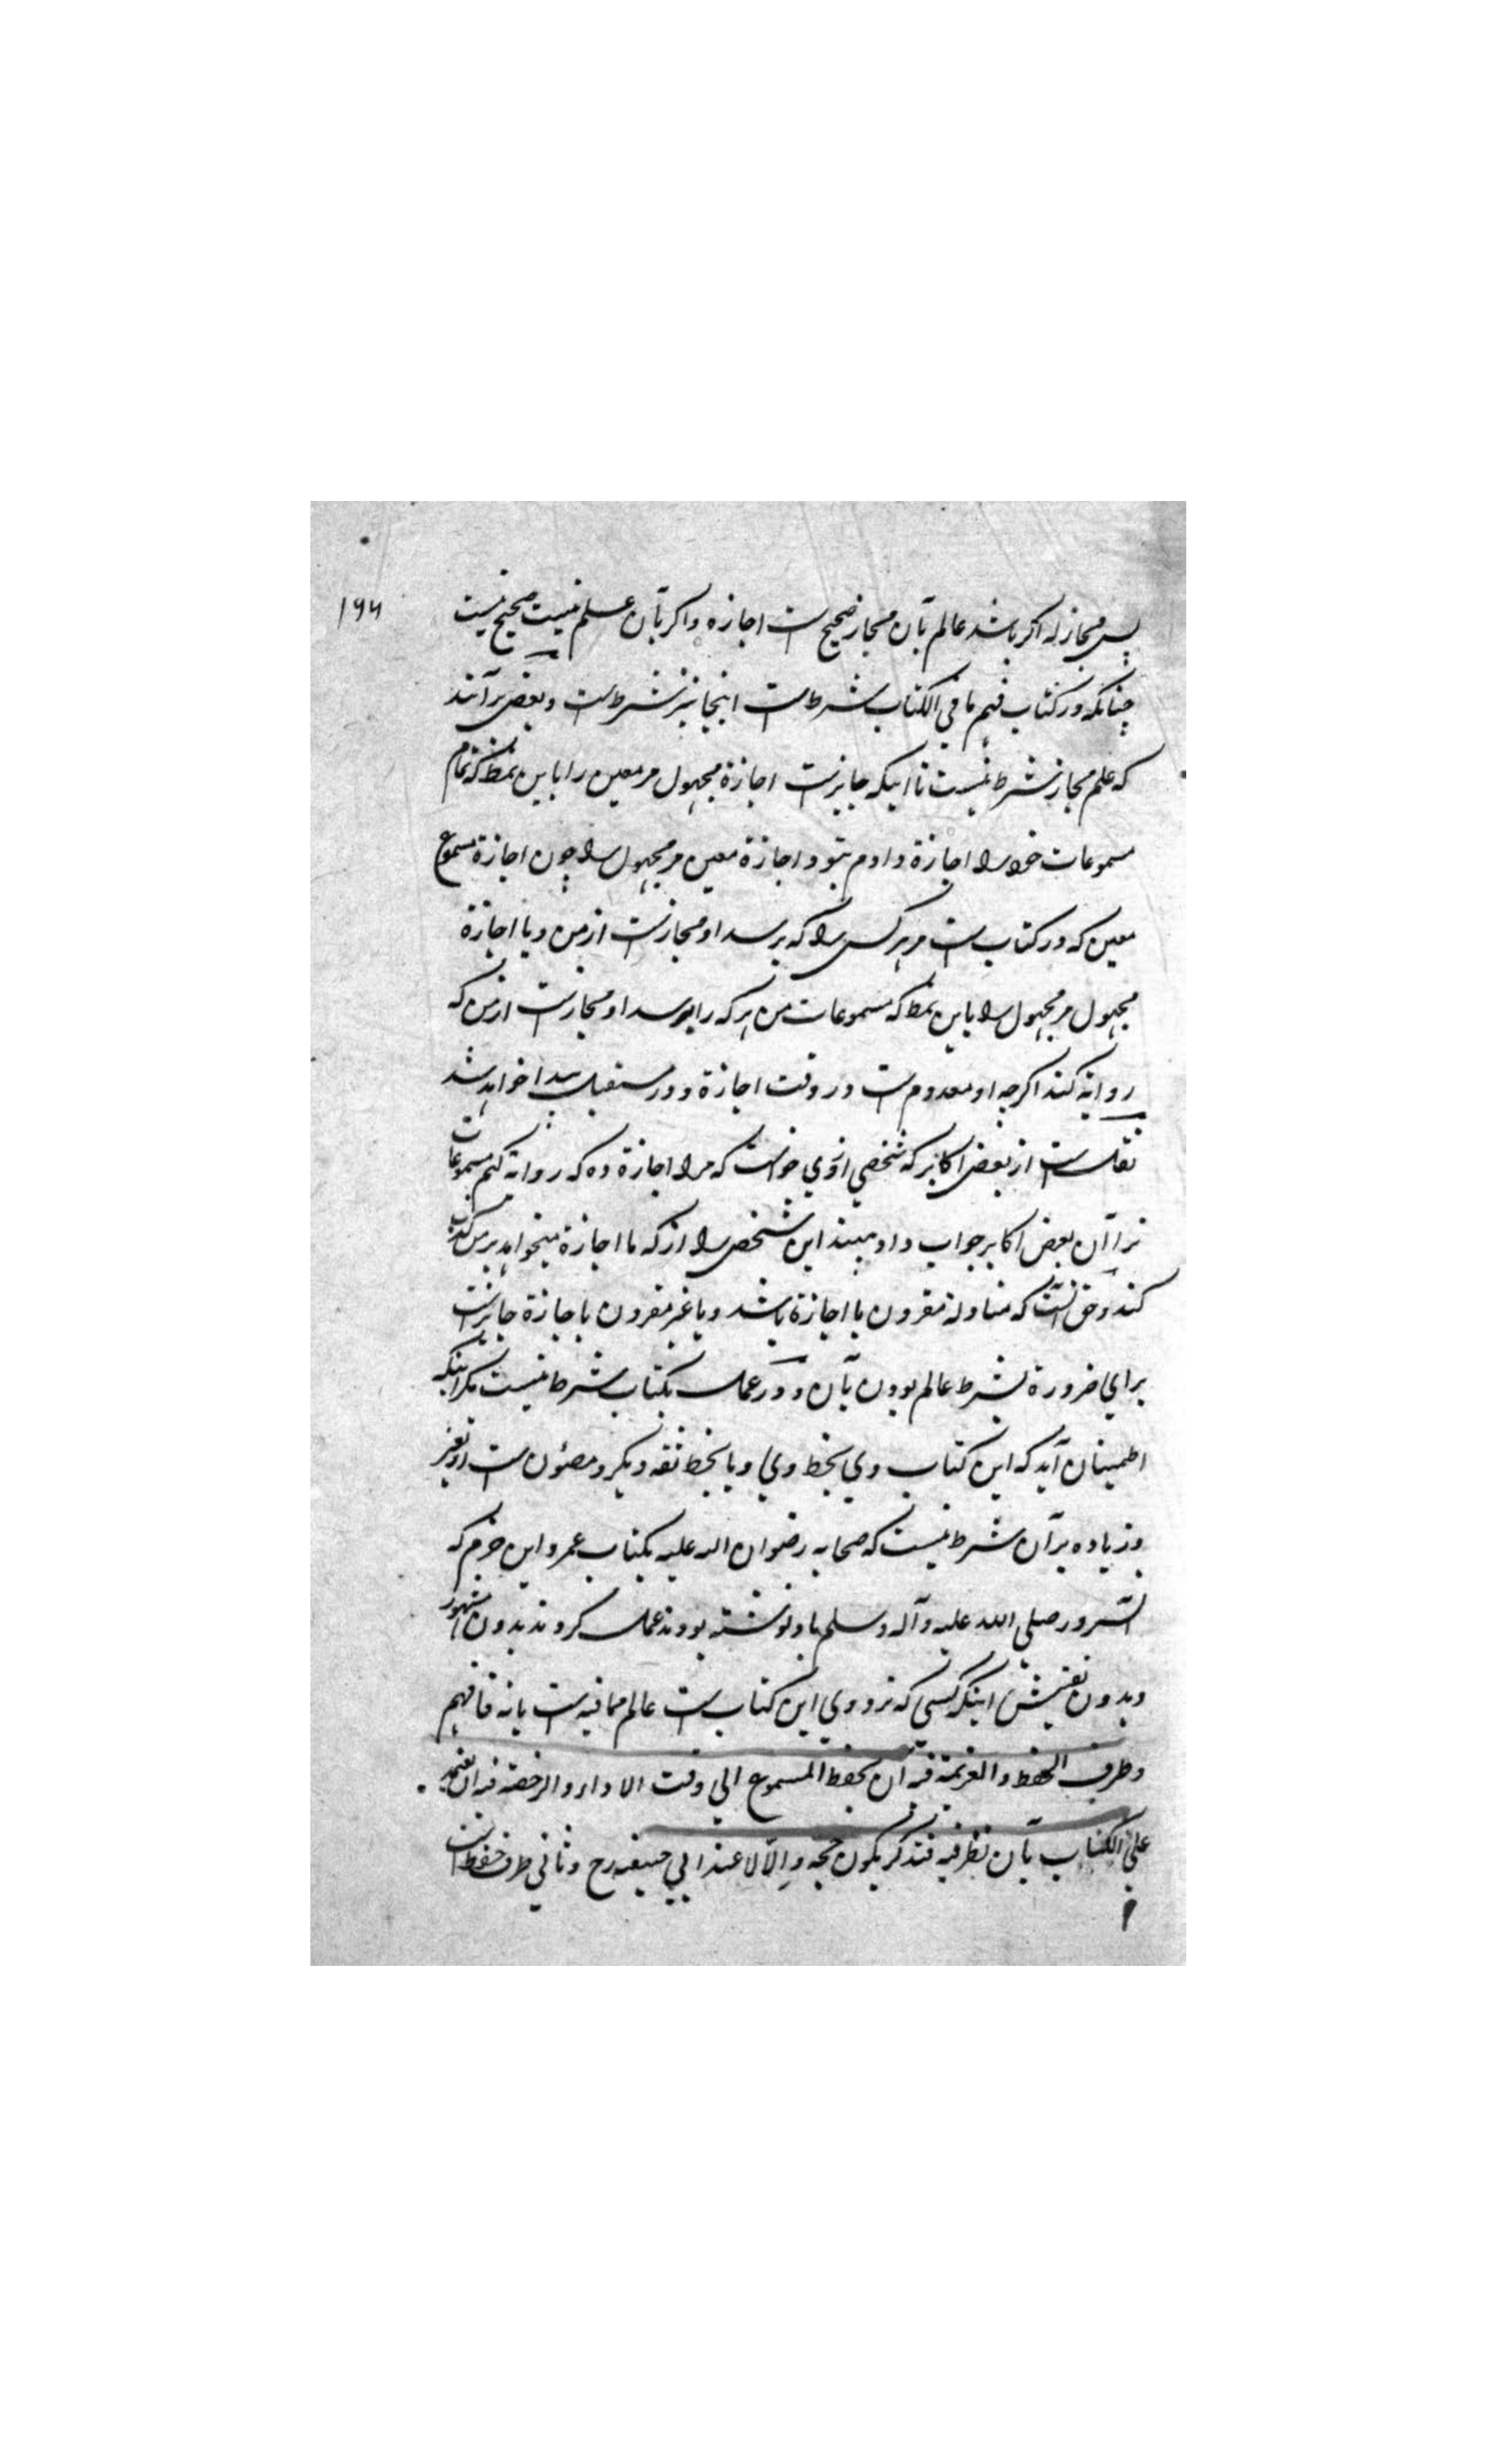 ۱۹۴
پس مجاز له اگر باشد عالم بآن مجاز صحیح ست اجازه و اگر بآن علم نیست صحیح نیست
چنانکه در کتاب فهم ما فی الکتاب شرط ست اینجا نیز شرط ست و بعض برآنند
که علم مجاز شرط نیست تا اینکه جایز ست اجازة مجهول مر معین را باین نمط که تمام
مسموعات خود را اجازة دادم بتو و اجازة معین مر مجهول را چون اجازة مسموع
معین که در کتاب ست مر هر کس را که برسد او مجاز ست از من و یا اجازة
مجهول مر مجهول را باین نمط که مسموعات من هر که را برسد او مجاز ست از من که
روایة کند اگرچه او معدوم ست در وقت اجازة و در مستقبل پیدا خواهد شد
نقل ست از بعض اکابر که شخصی از وی خواست که مرا اجازة ده که روایة کنم مسموعات
ترا آن بعض اکابر جواب داد ببیند این شخص را از که ما اجازة میخواهد بر من کذب
کند و حق آنست که مناولة مقرون با اجازة باشد و یا غیر مقرون باجازة جایز ست
برای ضرورة بشرط عالم بودن بآن و در عمل بکتاب شرط نیست مگر اینکه
اطمینان آید که این کتاب وی بخط وی و یا بخط ثقه دیگر و مصئون ست از تغیر
و زیاده برآن شرط نیست که صحابه رضوان الله علیه بکتاب عمرو ابن حزم که
آنسرور صلی الله علیه و آله و سلم باو نوشته بودند عمل کردند بدون اشتهاد
و بدون تفتیش اینکه کسی که نزد وی این کتاب ست عالم بما فیه ست یا نه فافهم
و طرف الحفظ و العزیمة فیه ان یحفظ المسموع الی وقت الاداء و الرخصة فیه ان یعتمد
علی الکتاب بآن نظر فیه فتذکر یکون حجة و إلّا لا عند ابی حنیفه رح و ثانی طرف حفظ ست